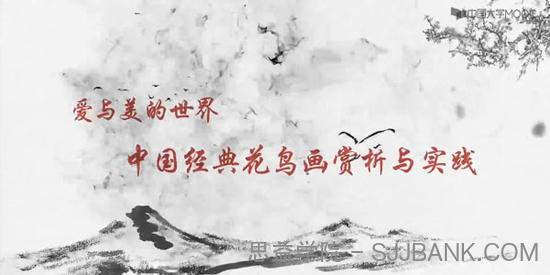 中国大学MOOC
爱与美的世界
中国经典花鸟画赏析与实践
思荟学院 - SJJBANK.COM